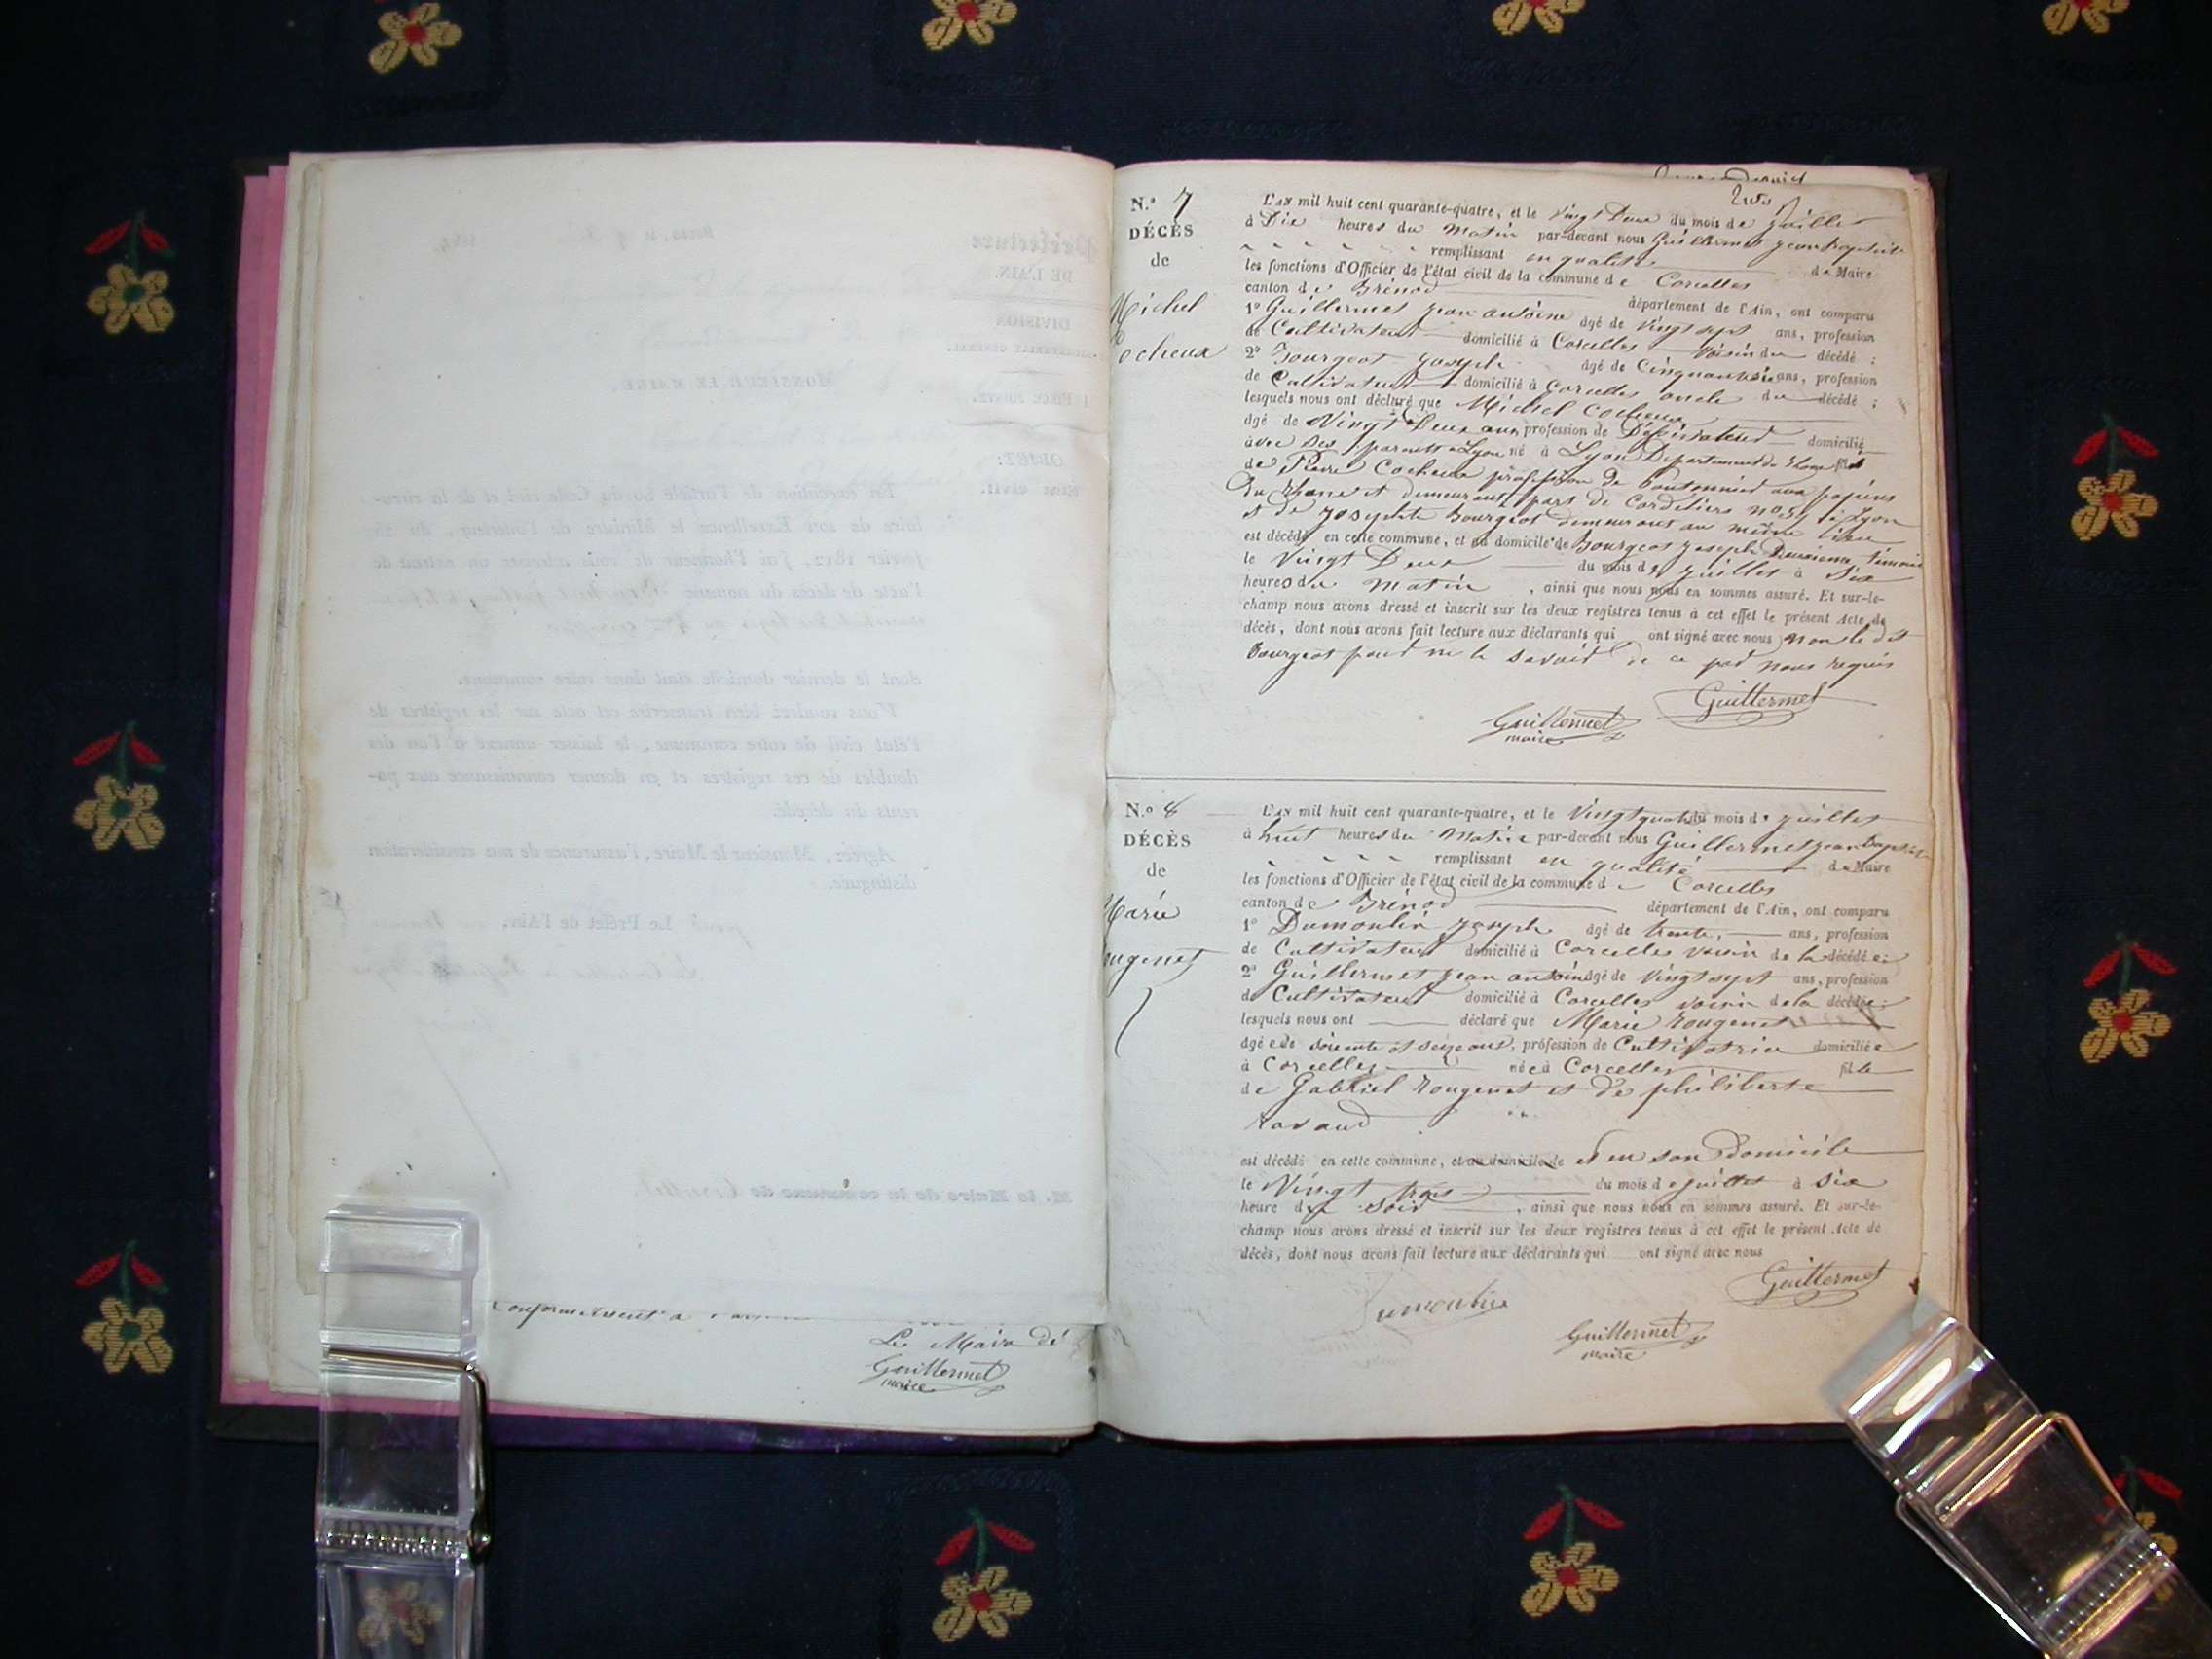 Conformément à
Le Maire dé
Guillermet
maire
N.º 7
DÉCÈS
de
Michel
Cocheux
L'AN mil huit cent quarante-quatre, et le Vingt Deux du mois de juillet
à Dix heures du Matin par-devant nous Guillermet jean baptiste
remplissant en qualité de Maire
les fonctions d'Officier de l'état civil de la commune de Corcelles
canton de Brénod département de l'Ain, ont comparu
1º Guillermet jean antoine âgé de vingt sept ans, profession
de Cultivateur domicilié à Corcelles voisin du décédé ;
2º Bourgeot joseph âgé de Cinquante ans, profession
de Cultivateur domicilié à Corcelles oncle du décédé ;
lesquels nous ont déclaré que Michel Cocheux
âgé de Vingt Deux ans profession de domicilié
avec ses parents à Lyon né à Lyon Département du Rhone fils
de Pierre Cocheux profession de boutonnier aux
du Rhone et demeurant port de Cordeliers no 59 à Lyon
et de josephte Bourgeot demeurant au même lieu
est décédé en cette commune, et au domicile de Bourgeot joseph Deuxieme témoin
le Vingt Deux du mois de juillet à Six
heures du matin , ainsi que nous nous en sommes assuré. Et sur-le-
champ nous avons dressé et inscrit sur les deux registres tenus à cet effet le présent Acte de
décès, dont nous avons fait lecture aux déclarants qui ont signé avec nous non le dit
Bourgeot pour ne le savoir de ce par nous requis
Guillermet
Guillermet
maire
N.º 8
DÉCÈS
de
Marie
ougenet
L'AN mil huit cent quarante-quatre, et le Vingt quatre du mois de juillet
à huit heures du Matin par-devant nous Guillermet jean Baptiste
remplissant en qualité de Maire
les fonctions d'Officier de l'état civil de la commune de Corcelles
canton de Brénod département de l'Ain, ont comparu
1º Dumoulin joseph âgé de trente, ans, profession
de Cultivateur domicilié à Corcelles voisin de la décédée ;
2º Guillermet jean antoine âgé de Vingt sept ans, profession
de Cultivateur domicilié à Corcelles voisin de la décédée ;
lesquels nous ont déclaré que Marie Rougenet
âgée de soixante et seize ans, profession de Cultivatrice domiciliée
à Corcelles née à Corcelles fille
de Gabriel Rougenet et de philiberte
Ravaud
est décédé en cette commune, et au domicile de et en son Domicile
le Vingt trois du mois de juillet à Six
heure du Soir , ainsi que nous nous en sommes assuré. Et sur-le-
champ nous avons dressé et inscrit sur les deux registres tenus à cet effet le présent Acte de
décès, dont nous avons fait lecture aux déclarants qui ont signé avec nous
Guillermet
Dumoulin
Guillermet
maire